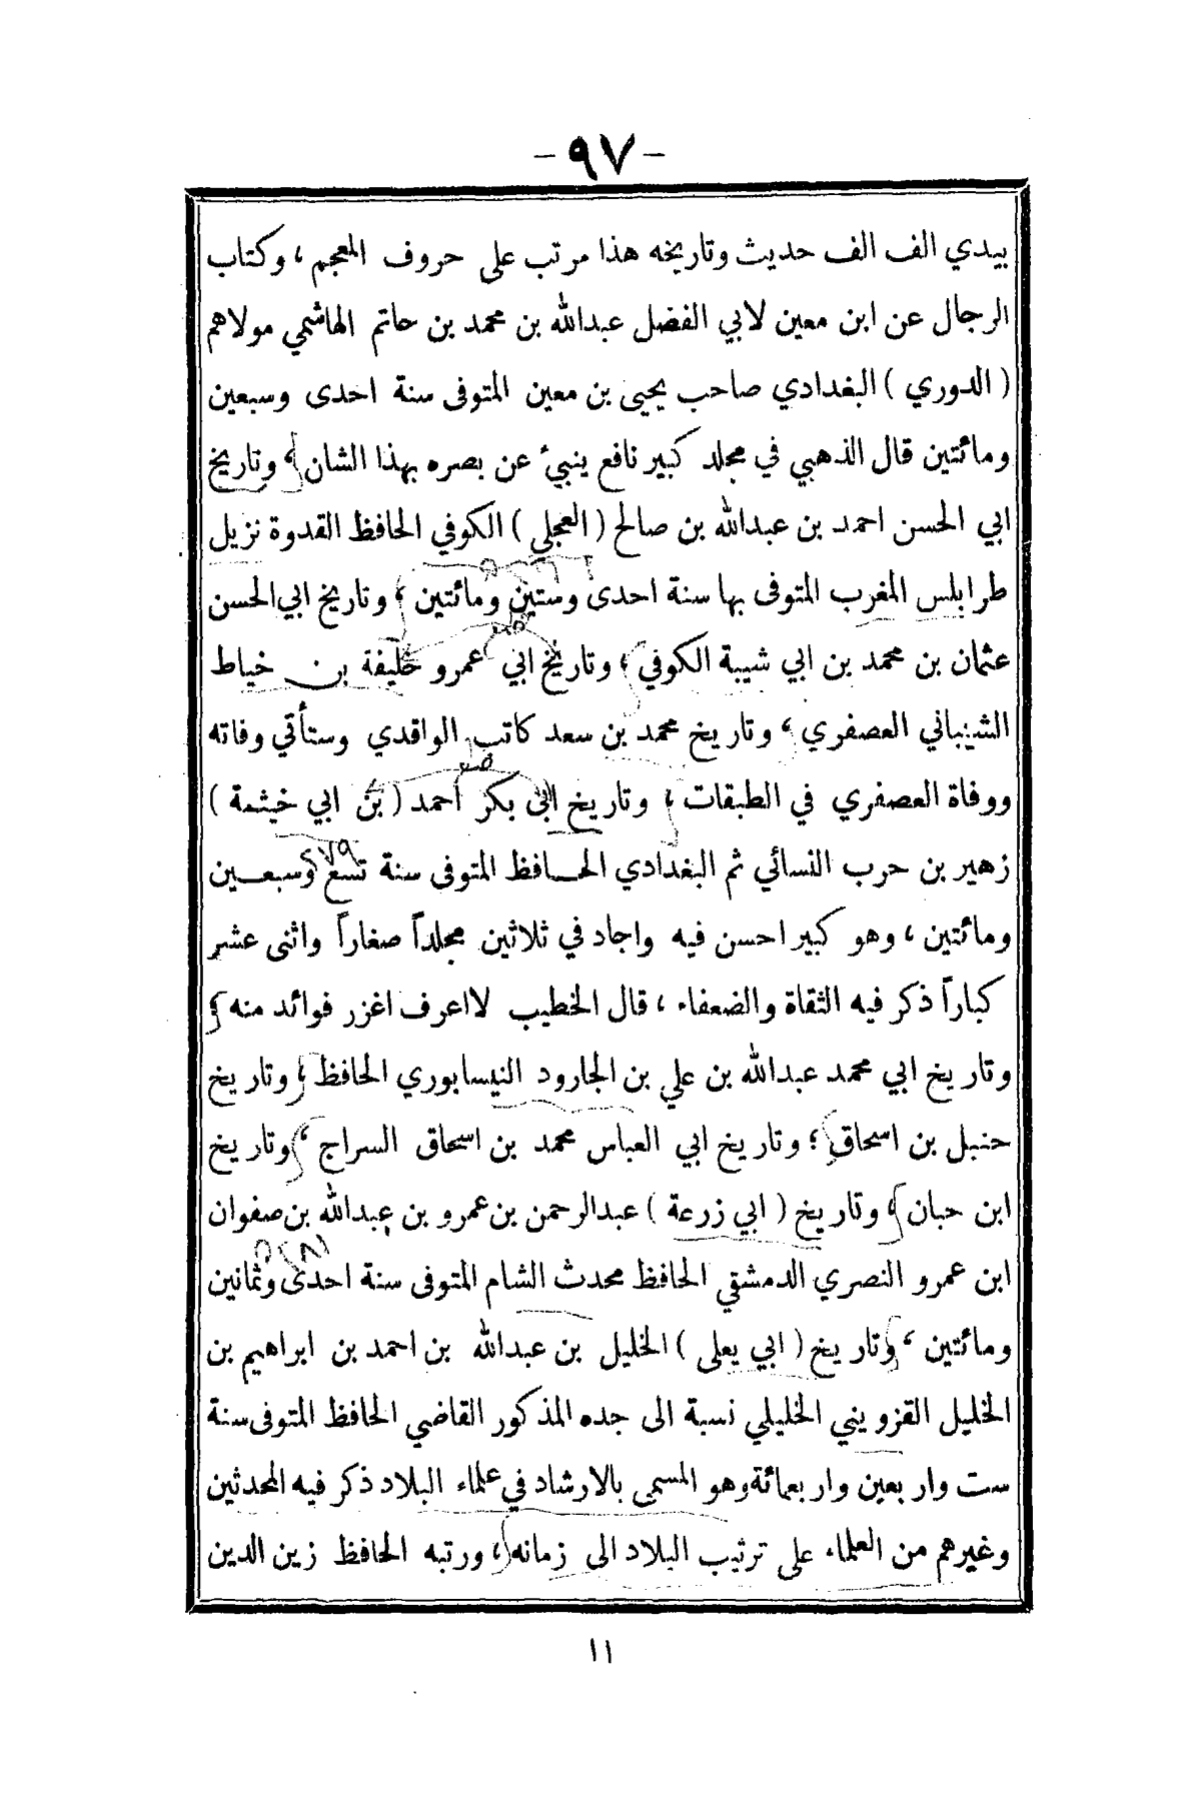 -٩٧-
بيدي الف الف حديث وتاريخه هذا مرتب على حروف المعجم ، وكتاب
الرجال عن ابن معين لابي الفضل عبدالله بن محمد بن حاتم الهاشمي مولاهم
( الدوري ) البغدادي صاحب يحيى بن معين المتوفى سنة احدى وسبعين
ومائتين قال الذهبي في مجلد كبير نافع ينبئ عن بصره بهذا الشان ، وتاريخ
ابي الحسن احمد بن عبدالله بن صالح ( العجلي ) الكوفي الحافظ القدوة نزيل
طرابلس المغرب المتوفى بها سنة احدى وستين ومائتين ، وتاريخ ابي الحسن
عثمان بن محمد بن ابي شيبة الكوفي ، وتاريخ ابي عمرو خليفة بن خياط
الشيباني العصفري ، وتاريخ محمد بن سعد كاتب الواقدي وستأتي وفاته
ووفاة العصفري في الطبقات ، وتاريخ ابي بكر أحمد ( بن ابي خيثمة )
زهير بن حرب النسائي ثم البغدادي الحافظ المتوفى سنة تسع وسبعين
ومائتين ، وهو كبير احسن فيه واجاد في ثلاثين مجلداً صغاراً واثنى عشر
كباراً ذكر فيه الثقاة والضعفاء ، قال الخطيب لااعرف اغزر فوائد منه ؛
وتاريخ ابي محمد عبدالله بن علي بن الجارود النيسابوري الحافظ ، وتاريخ
حنبل بن اسحاق ؛ وتاريخ ابي العباس محمد بن اسحاق السراج ، وتاريخ
ابن حبان ، وتاريخ ( ابي زرعة ) عبدالرحمن بن عمرو بن عبدالله بن صفوان
ابن عمرو النصري الدمشقي الحافظ محدث الشام المتوفى سنة احدى وثمانين
ومائتين ، وتاريخ ( ابي يعلى ) الخليل بن عبدالله بن احمد بن ابراهيم بن
الخليل القزويني الخليلي نسبة الى جده المذكور القاضي الحافظ المتوفى سنة
ست واربعين واربعمائة وهو المسمى بالارشاد في علماء البلاد ذكر فيه المحدثين
وغيرهم من العلماء على ترتيب البلاد الى زمانه ، ورتبه الحافظ زين الدين
١١